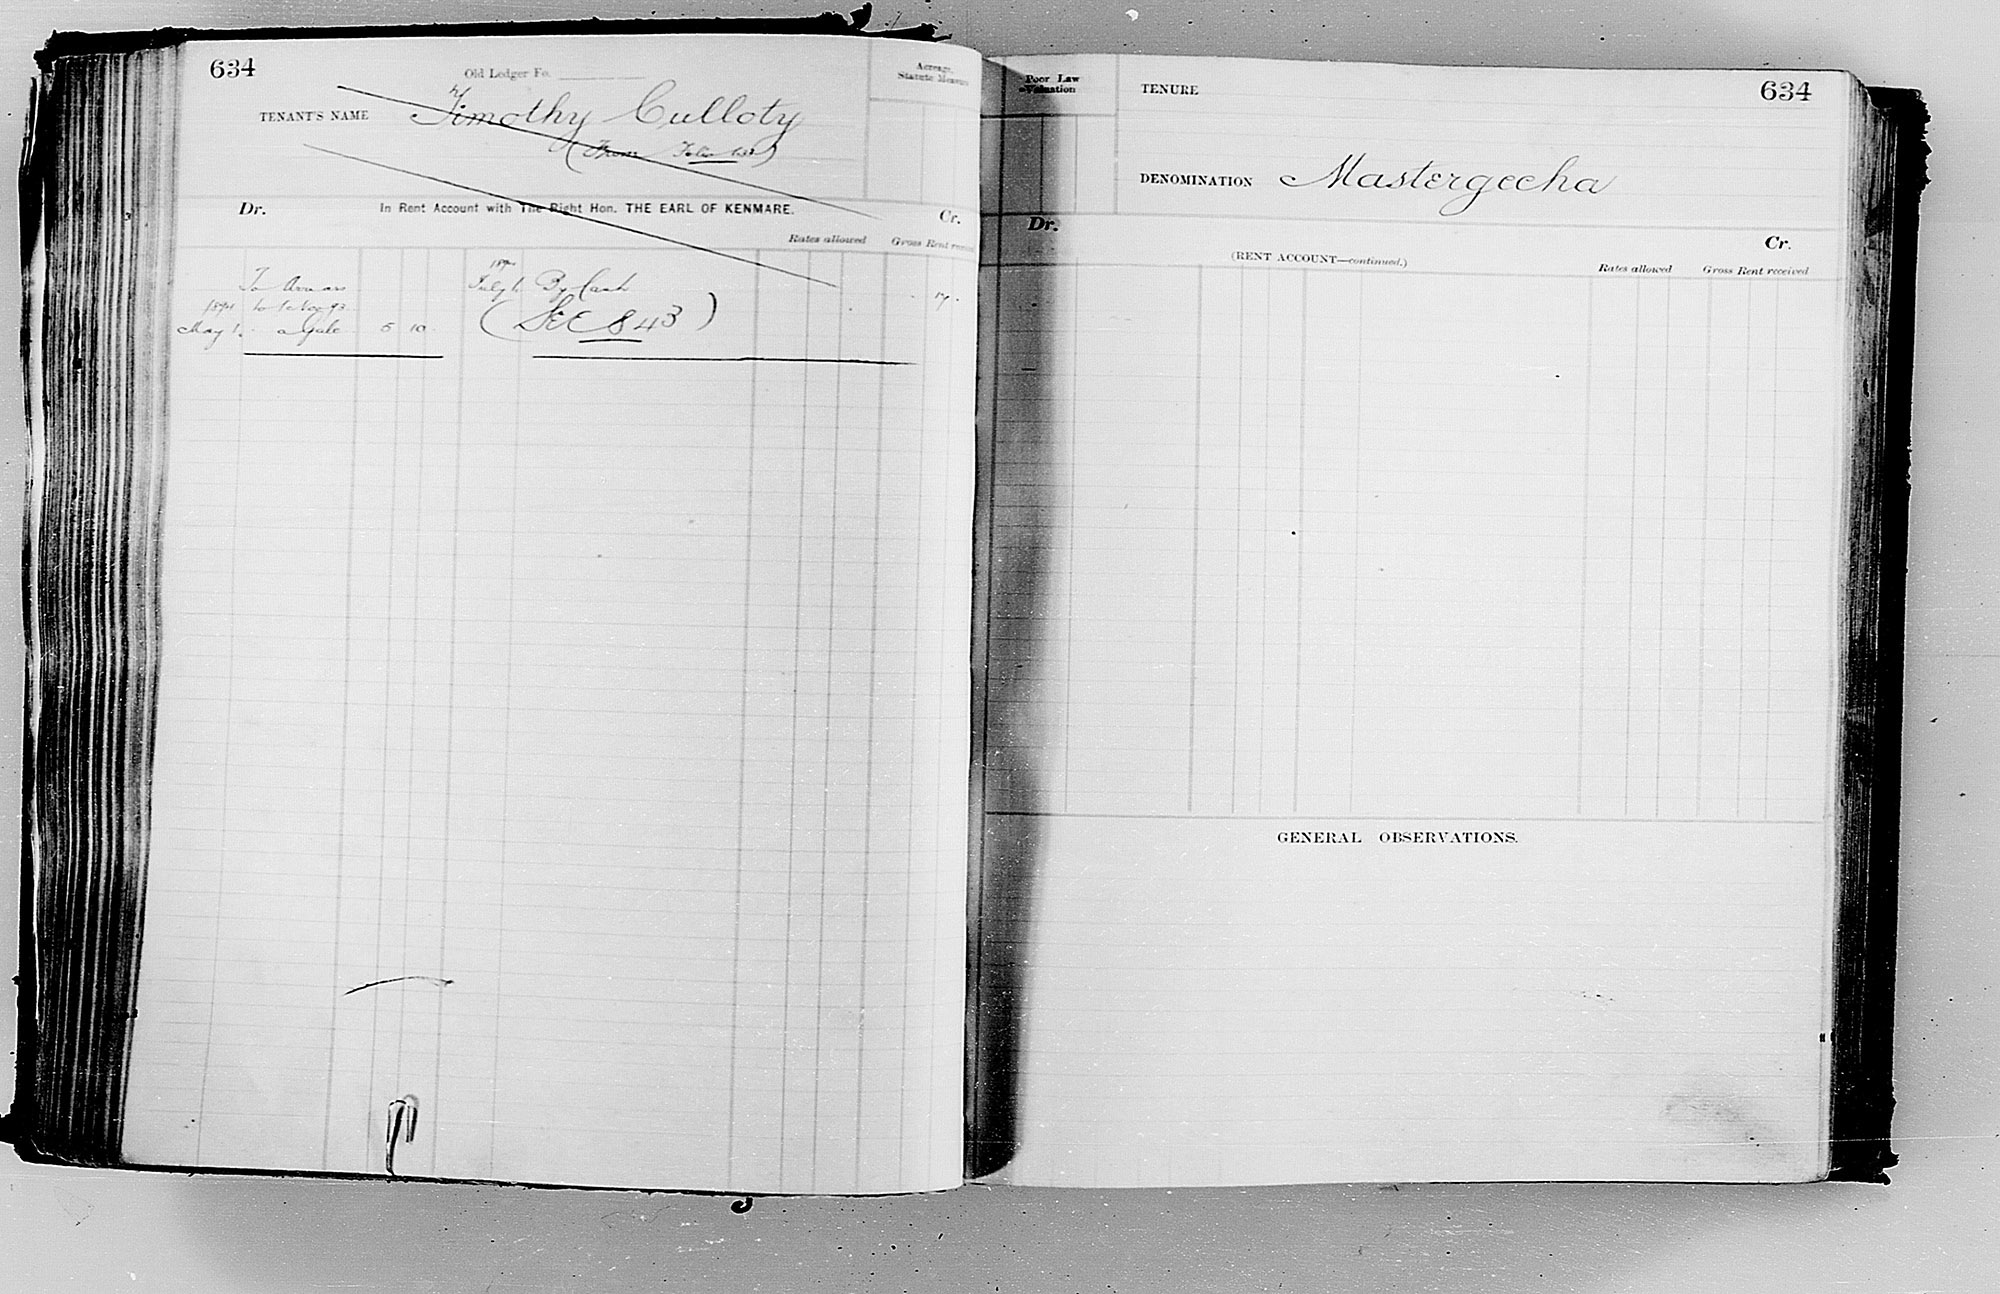 634
Old Ledger Fo.
Acreage, Statute Measure
TENANT'S NAME Timothy Culloty
(From Folio
Dr. In Rent Account with The Right Hon. THE EARL OF KENMARE. Cr.
Rates allowed Gross Rent received
To Arrears
to 1 Nov 93
1894
May 1. a Gale 5 10
July By Cash 17
(SEE 843)
Poor Law Valuation
TENURE
634
DENOMINATION Mastergeeha
Dr. Cr.
(RENT ACCOUNT—continued.)
Rates allowed Gross Rent received
GENERAL OBSERVATIONS.